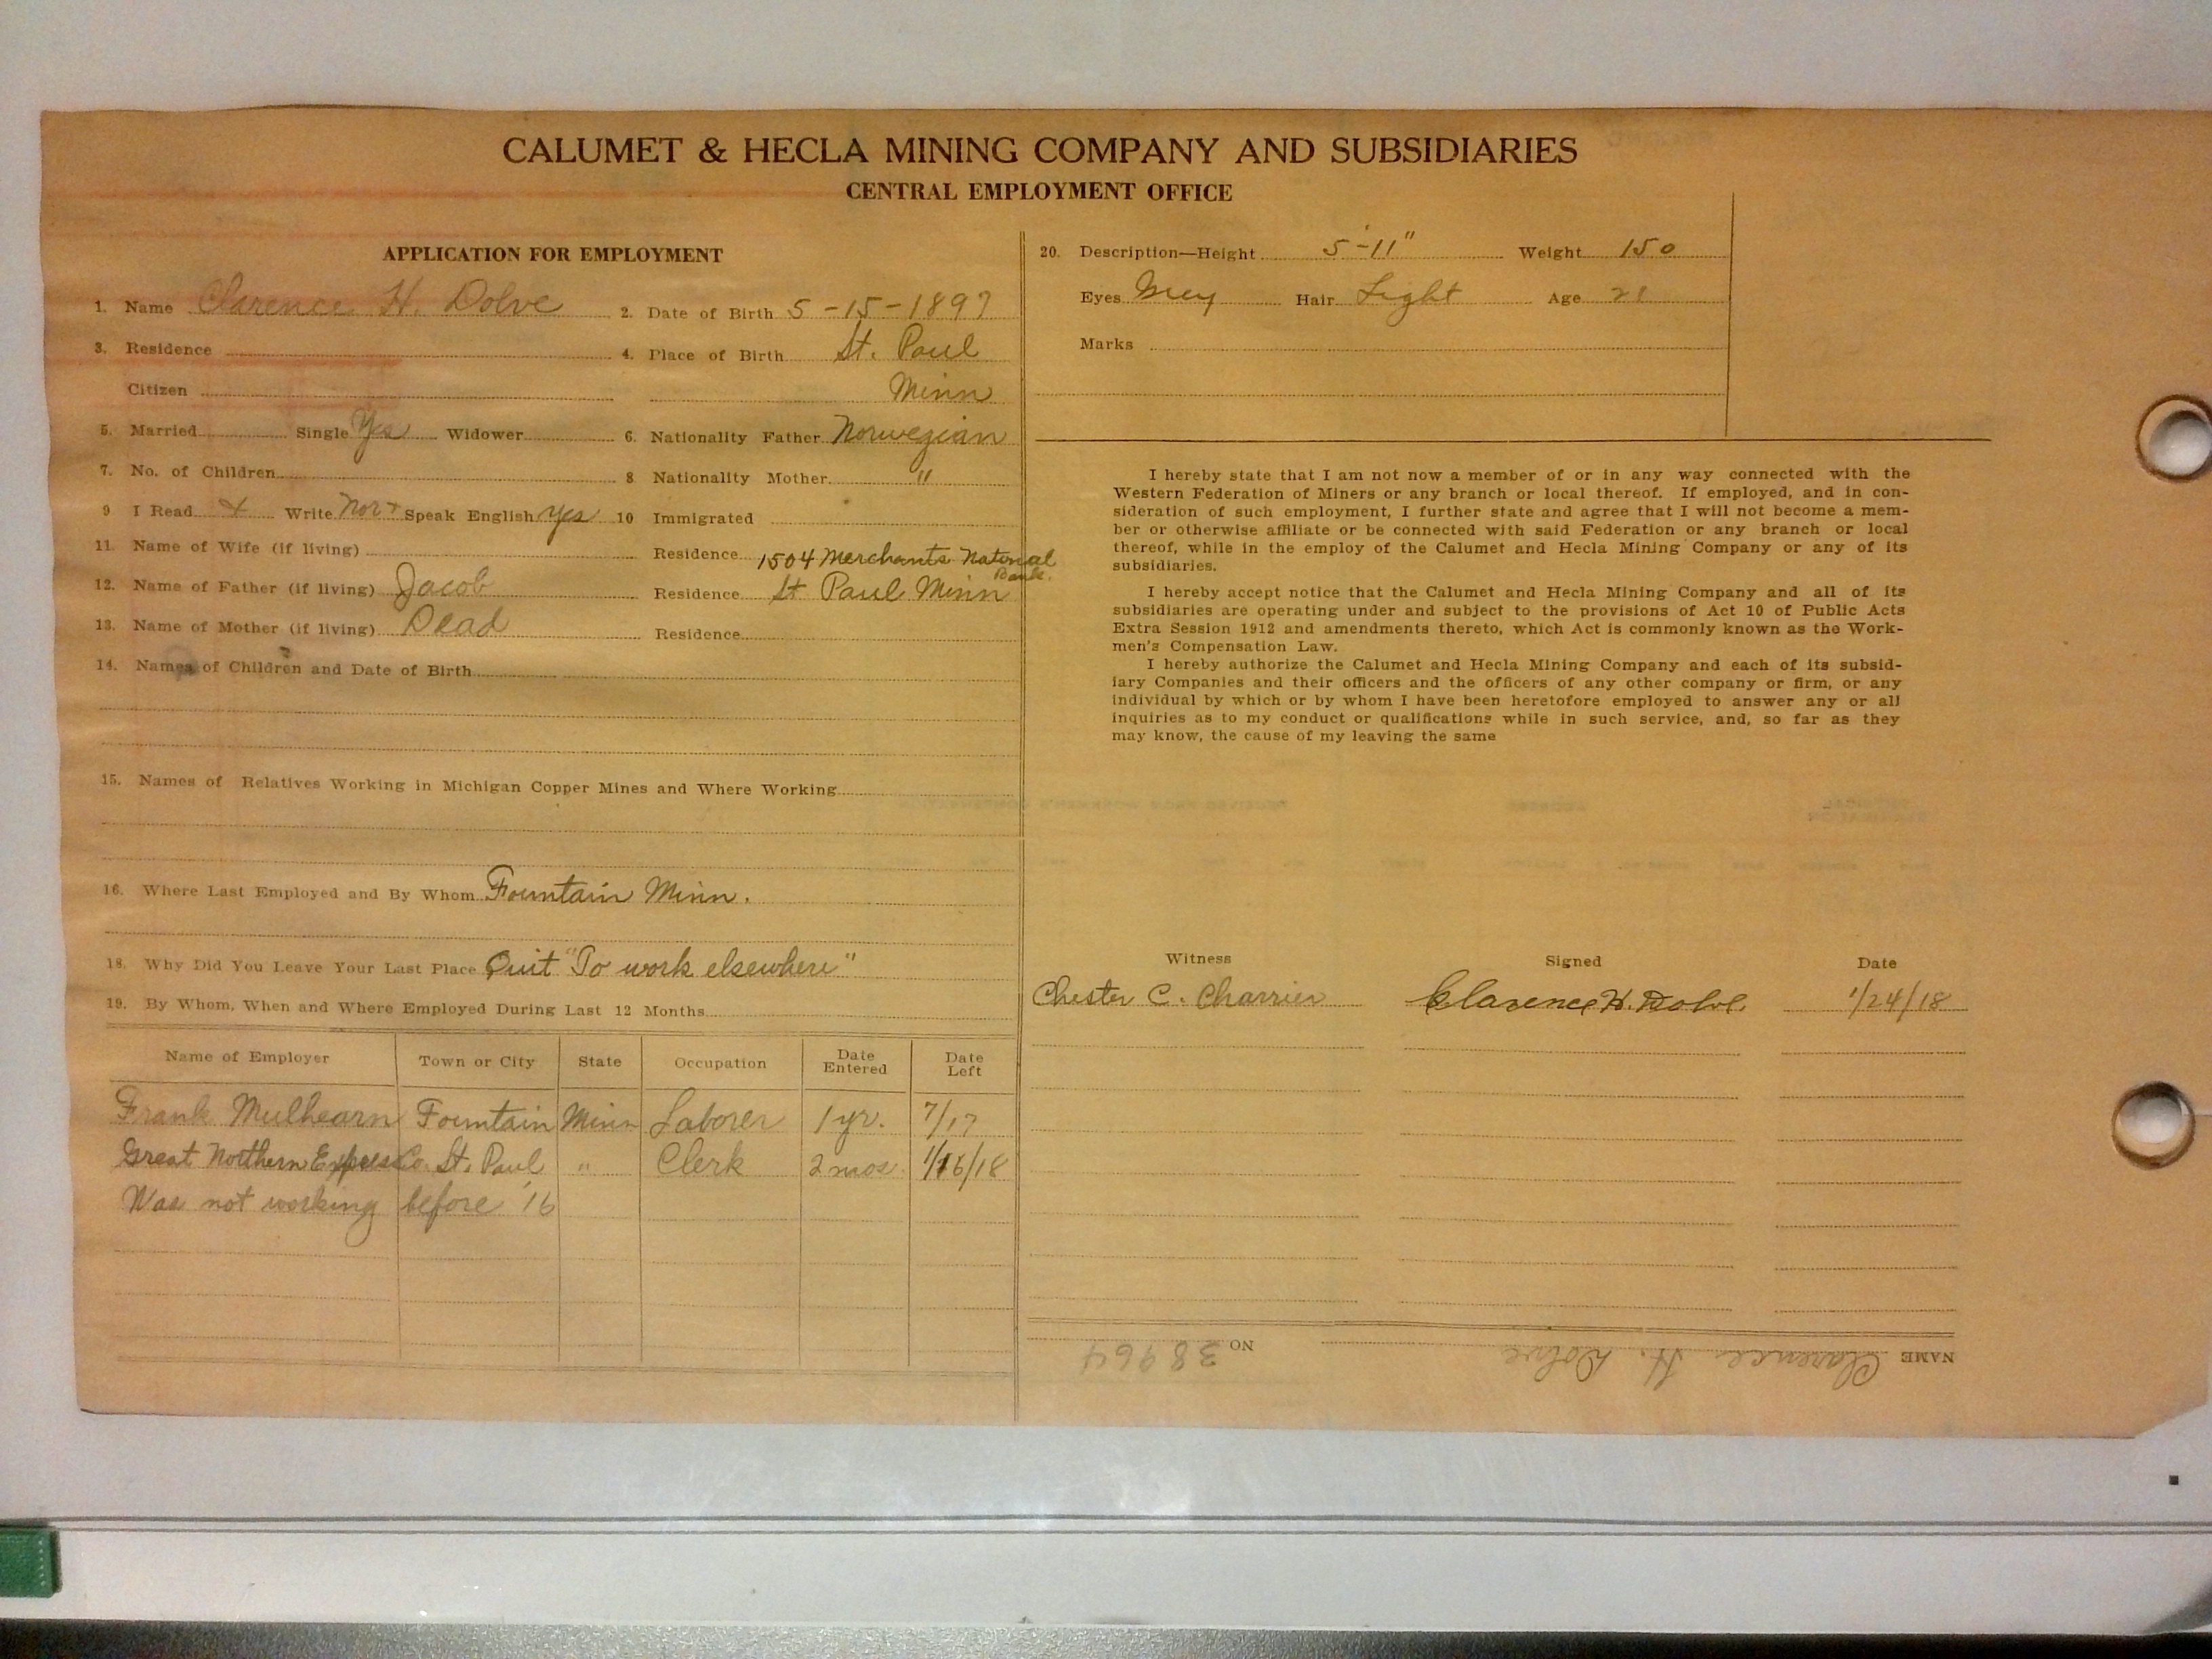 CALUMET & HECLA MINING COMPANY AND SUBSIDIARIES
CENTRAL EMPLOYMENT OFFICE
APPLICATION FOR EMPLOYMENT
1. Name Clarence H. Dolve 2. Date of Birth 5-15-1897
3. Residence 4. Place of Birth St. Paul
Citizen Minn
5. Married Single Yes Widower 6. Nationality Father Norwegian
7. No. of Children 8 Nationality Mother "
9 I Read & Write Nor + Speak English Yes 10 Immigrated
11. Name of Wife (if living) Residence 1504 Merchants National Bank.
12. Name of Father (if living) Jacob Residence St Paul Minn
13. Name of Mother (if living) Dead Residence
14. Names of Children and Date of Birth
15. Names of Relatives Working in Michigan Copper Mines and Where Working
16. Where Last Employed and By Whom Fountain Minn.
18. Why Did You Leave Your Last Place Quit "To work elsewhere"
19. By Whom, When and Where Employed During Last 12 Months
Name of Employer Town or City State Occupation Date Entered Date Left
Frank Mulhearn Fountain Minn Laborer 1 yr. 7/17
Great Northern Express Co. St. Paul " Clerk 2 mos. 1/16/18
Was not working before '16
20. Description—Height 5'-11" Weight 150
Eyes Grey Hair Light Age 21
Marks
I hereby state that I am not now a member of or in any way connected with the
Western Federation of Miners or any branch or local thereof. If employed, and in con-
sideration of such employment, I further state and agree that I will not become a mem-
ber or otherwise affiliate or be connected with said Federation or any branch or local
thereof, while in the employ of the Calumet and Hecla Mining Company or any of its
subsidiaries.
I hereby accept notice that the Calumet and Hecla Mining Company and all of its
subsidiaries are operating under and subject to the provisions of Act 10 of Public Acts
Extra Session 1912 and amendments thereto, which Act is commonly known as the Work-
men's Compensation Law.
I hereby authorize the Calumet and Hecla Mining Company and each of its subsid-
iary Companies and their officers and the officers of any other company or firm, or any
individual by which or by whom I have been heretofore employed to answer any or all
inquiries as to my conduct or qualifications while in such service, and, so far as they
may know, the cause of my leaving the same
Witness Signed Date
Chester C. Charrier Clarence H. Dolve 1/24/18
NAME Clarence H. Dolve NO 38964